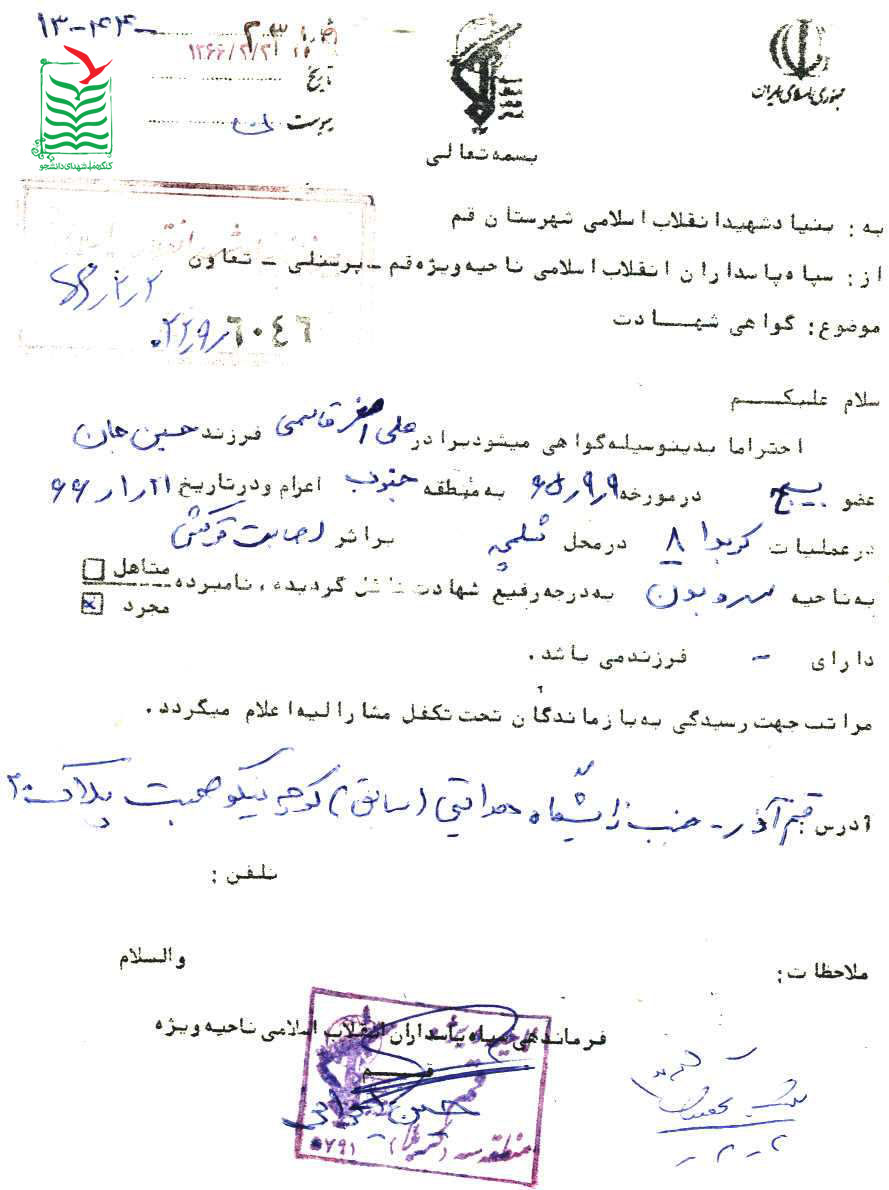 جمهوری اسلامی ایران
۱۳-۴۴-
۱۳۶۶/۲/۲
تاریخ
پیوست
کنگره ملی شهدای دانشجو
بسمه تعالی
به: بنیاد شهید انقلاب اسلامی شهرستان قم
از: سپاه پاسداران انقلاب اسلامی ناحیه ویژه قم ـ پرسنلی ـ تعاون
موضوع: گواهی شهادت
۶۶/۲/۲
۲۲۹/۶۰۴۶
سلام علیکم
احتراما بدینوسیله گواهی میشود برادر علی اصغر قاسمی فرزند حسین جان
عضو بسیج در مورخه ۶۵/۹/۹ به منطقه جنوب اعزام و در تاریخ ۶۶/۱/۲۱
در عملیات کربلا ۸ در محل شلمچه بر اثر اصابت ترکش
به ناحیه سر و بدن به درجه رفیع شهادت نائل گردیده، نامبرده متاهل
مجرد
دارای - فرزند می باشد.
مراتب جهت رسیدگی به بازماندگان تحت تکفل مشارالیه اعلام میگردد.
آدرس: قم آذر - جنب زایشگاه (سابق) کوچه نیکو صحبت پلاک
تلفن:
ملاحظات:
والسلام
فرماندهی سپاه پاسداران انقلاب اسلامی ناحیه ویژه
قم
حسین
منطقه